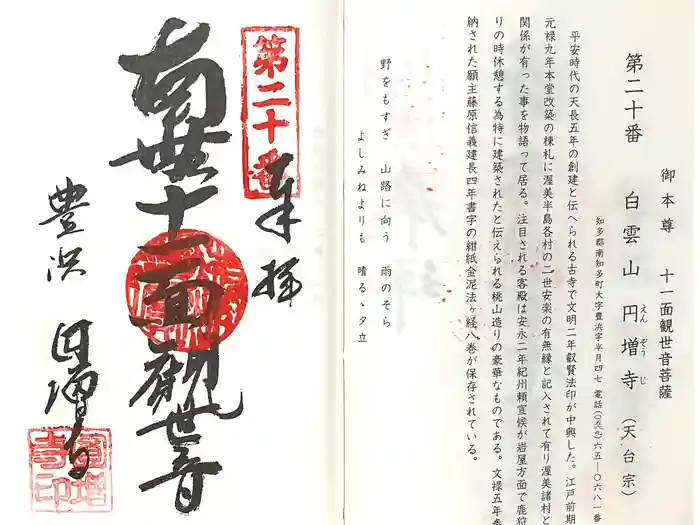 御本尊　十一面観世音菩薩
第二十番　白雲山　円増寺（天台宗）
えんぞうじ
知多郡南知多町大字豊浜字半月四七　電話(〇五六九)六五―〇六八一番
平安時代の天長五年の創建と伝へられる古寺で文明二年叡賢法印が中興した。江戸前期
元禄九年本堂改築の棟札に渥美半島各村の二世安楽の有無縁と記入されて有り渥美諸村と
関係が有った事を物語って居る。注目される客殿は安永二年紀州頼宣候が岩屋方面で鹿狩
りの時休憩する為特に建築されたと伝えられる桃山造りの豪華なものである。文禄五年奉
納された願主藤原信義建長四年書字の紺紙金泥法ヶ経八巻が保存されている。
野をもすぎ　山路に向う　雨のそら
よしみねよりも　晴るゝ夕立
第二十番
奉拝
南無十一面観世音
豊浜　円増寺
円増寺印